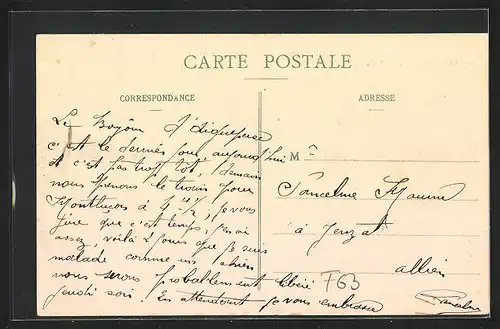 CARTE POSTALE
CORRESPONDANCE
ADRESSE
Le Bonjour d'Aigueperse
c'est le dernier jour aujourd'hui
et c'est pas trop tôt, demain
nous prenons le train pour
Montluçon à 4 h ½, je vous
jure que c'est temps, j'en ai
assez, voilà 2 jours que je suis
malade comme un chien
nous serons probablement libéré
jeudi soir. En attendant je vous embrasse
Mme
à Jenzat
Allier
F63